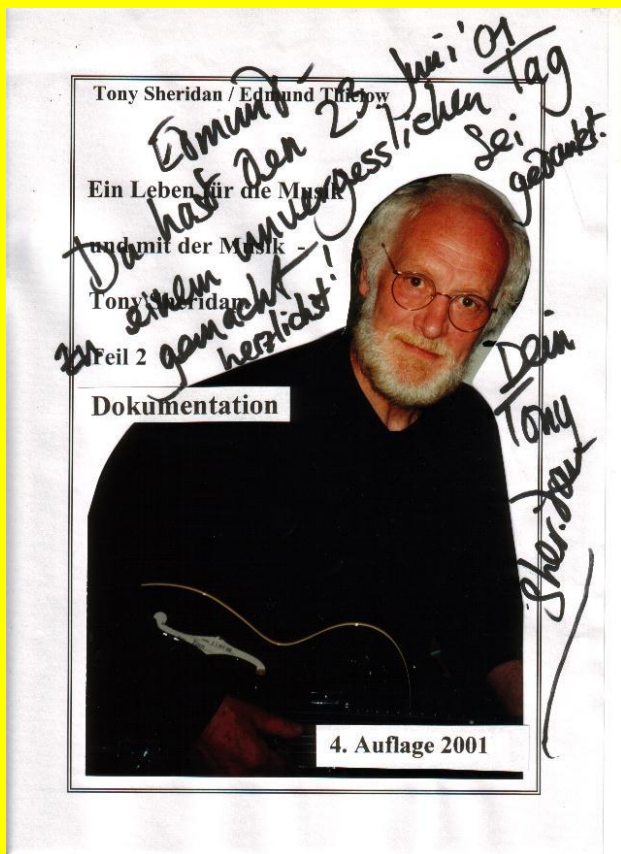 Tony Sheridan / Edmund Thielow
Ein Leben für die Musik
und mit der Musik -
Tony Sheridan
Teil 2
Dokumentation
4. Auflage 2001
Edmund -
Du hast den 23. Juni '01
zu einem unvergesslichen Tag
gemacht!
herzlichst!
Sei
gedankt.
Dein
Tony
Sheridan